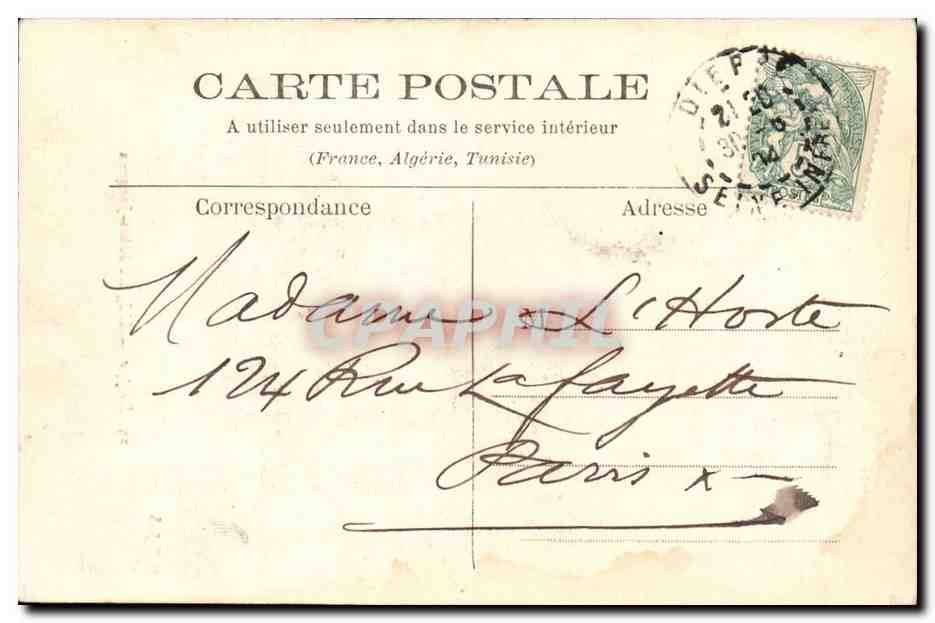 CARTE POSTALE
A utiliser seulement dans le service intérieur
(France, Algérie, Tunisie)
DIEPPE
21 30
SEINE INFRE
Correspondance
Adresse
CPAPHIL
Madame L'Hoste
124 Rue Lafayette
Paris x